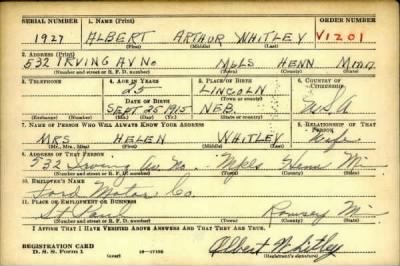 SERIAL NUMBER 1. NAME (Print) ORDER NUMBER
1927 ALBERT ARTHUR WHITLEY V1201
(First) (Middle) (Last)
2. ADDRESS (Print)
532 IRVING AV No MPLS HENN Minn
(Number and street or R. F. D. number) (Town) (County) (State)
3. TELEPHONE 4. AGE IN YEARS 5. PLACE OF BIRTH 6. COUNTRY OF CITIZENSHIP
25 LINCOLN
DATE OF BIRTH (Town or county)
SEPT. 25 1915 NEB. U.S.A
(Exchange) (Number) (Mo.) (Day) (Yr.) (State or country)
7. NAME OF PERSON WHO WILL ALWAYS KNOW YOUR ADDRESS 8. RELATIONSHIP OF THAT PERSON
MRS HELEN WHITLEY Wife
(Mr., Mrs., Miss) (First) (Middle) (Last)
9. ADDRESS OF THAT PERSON
532 Irving Av. No. Mpls Henn Minn
(Number and street or R. F. D. number) (Town) (County) (State)
10. EMPLOYER'S NAME
Ford Motor Co
11. PLACE OF EMPLOYMENT OR BUSINESS
St. Paul Ramsey
(Number and street or R. F. D. number) (Town) (County) (State)
I AFFIRM THAT I HAVE VERIFIED ABOVE ANSWERS AND THAT THEY ARE TRUE.
REGISTRATION CARD
D. S. S. Form 1 Albert Whitley
(Registrant's signature)